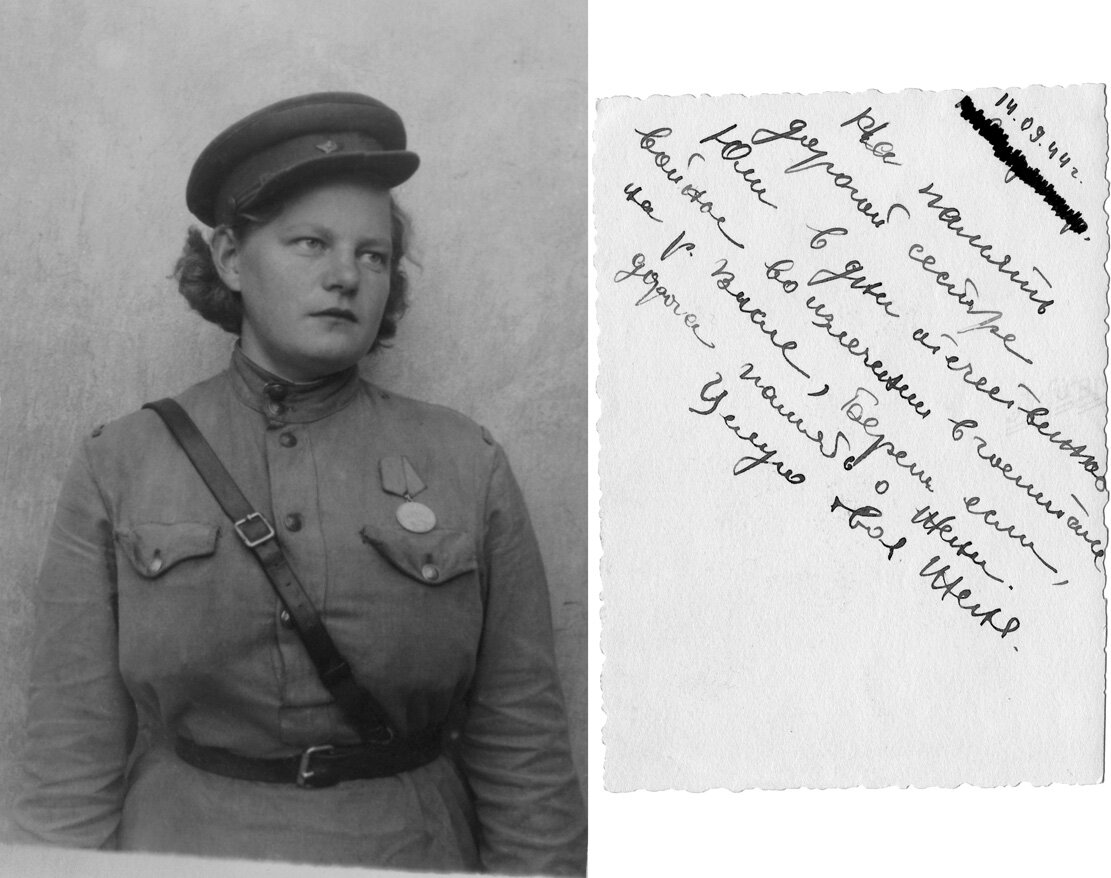 14.09.44 г.
На память
дорогой сестре
Юли в дни отечественною
во излечении в госпитале
на р. Висле, береги если,
дорога память о Жени.
Целую твоя Женя.